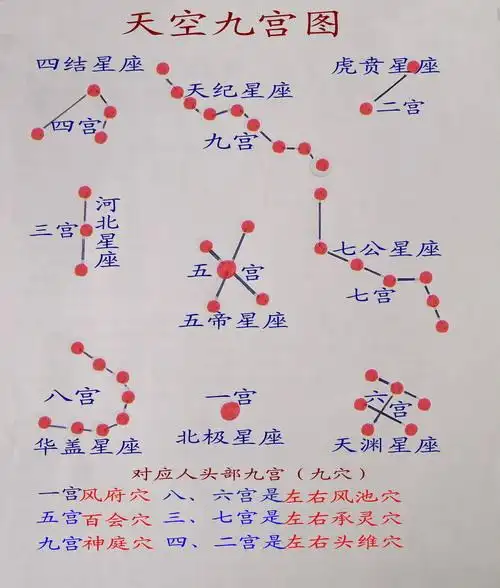 天空九宫图
四结星座
天纪星座
虎贲星座
四宫
九宫
二宫
三宫
河北星座
五宫
五帝星座
七公星座
七宫
八宫
华盖星座
一宫
北极星座
六宫
天渊星座
对应人头部九宫（九穴）
一宫风府穴 八、六宫是左右风池穴
五宫百会穴 三、七宫是左右承灵穴
九宫神庭穴 四、二宫是左右头维穴